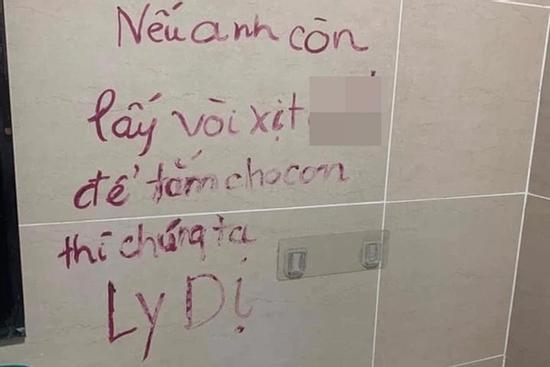 Nếu anh còn
lấy vòi xịt
để tắm cho con
thì chúng ta
Ly Dị